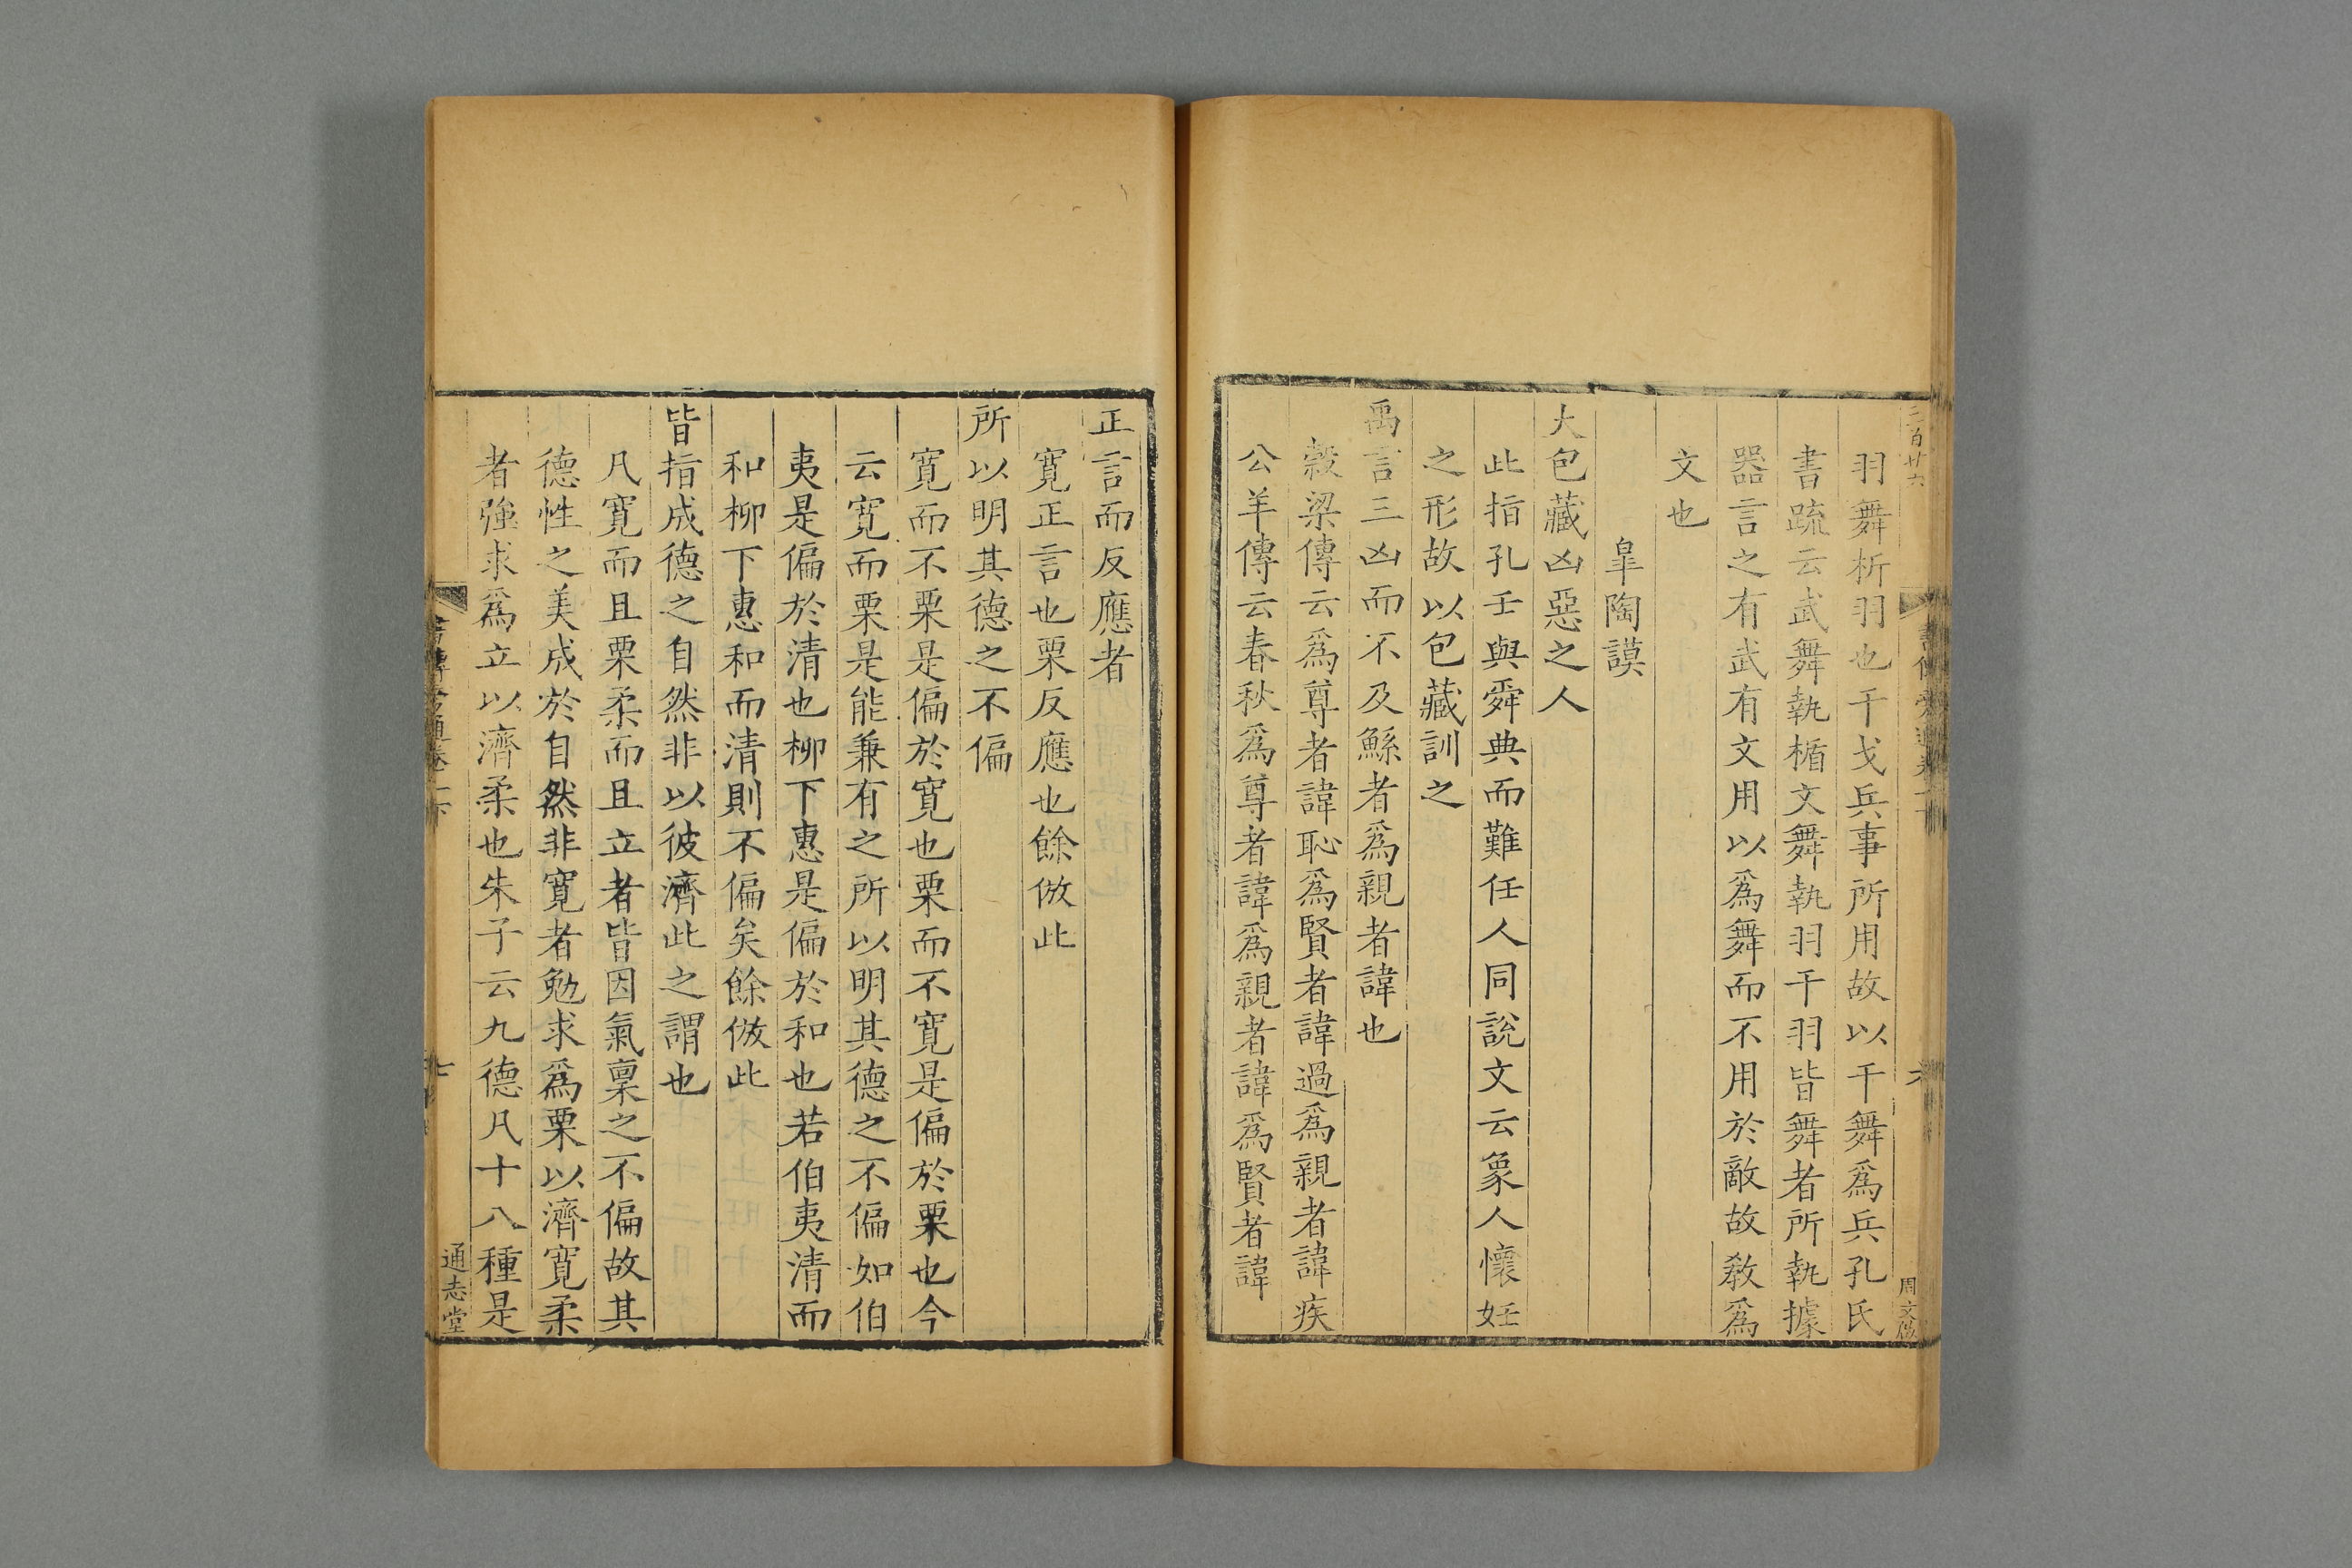 二百廿六
周文
羽舞析羽也干戈兵事所用故以干舞爲兵孔氏
書疏云武舞執楯文舞執羽干羽皆舞者所執據
器言之有武有文用以爲舞而不用於敵故教爲
文也
皐陶謨
大包藏凶惡之人
此指孔壬與舜典而難任人同說文云象人懷妊
之形故以包藏訓之
禹言三凶而不及鯀者爲親者諱也
穀梁傳云爲尊者諱恥爲賢者諱過爲親者諱疾
公羊傳云春秋爲尊者諱爲親者諱爲賢者諱
正言而反應者
寛正言也栗反應也餘倣此
所以明其德之不偏
寛而不栗是偏於寛也栗而不寛是偏於栗也今
云寛而栗是能兼有之所以明其德之不偏如伯
夷是偏於清也柳下惠是偏於和也若伯夷清而
和柳下惠和而清則不偏矣餘倣此
皆指成德之自然非以彼濟此之謂也
凡寛而且栗柔而且立者皆因氣稟之不偏故其
德性之美成於自然非寛者勉求爲栗以濟寛柔
者強求爲立以濟柔也朱子云九德凡十八種是
七
通志堂